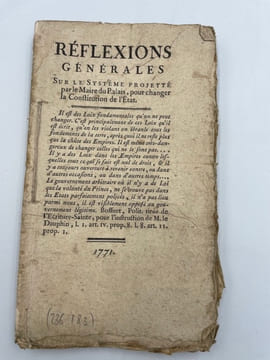 RÉFLEXIONS
GÉNÉRALES
SUR LE SYSTÊME PROJETTÉ
par le Maire du Palais, pour changer
la Constitution de l'Etat.
Il est des Loix fondamentales qu'on ne peut
changer. C'est principalement de ces Loix qu'il
est écrit, qu'en les violant on ébranle tous les
fondements de la terre, après quoi il ne reste plus
que la chûte des Empires. Il est même très-dan-
gereux de changer celles qui ne le sont pas....
Il y a des Loix dans les Empires contre les-
quelles tout ce qui se fait est nul de droit; & il
y a toujours ouverture à revenir contre, ou dans
d'autres occasions, ou dans d'autres temps....
Le gouvernement arbitraire où il n'y a de Loi
que la volonté du Prince, ne se trouve pas dans
les Etats parfaitement policés, il n'a pas lieu
parmi nous, il est visiblement opposé au gou-
vernement légitime. Bossuet, Polit. tirée de
l'Ecriture-Sainte, pour l'instruction de M. le
Dauphin, l. 1. art. IV. prop. 8. l. 8. art. 11.
prop. 1.
1771.